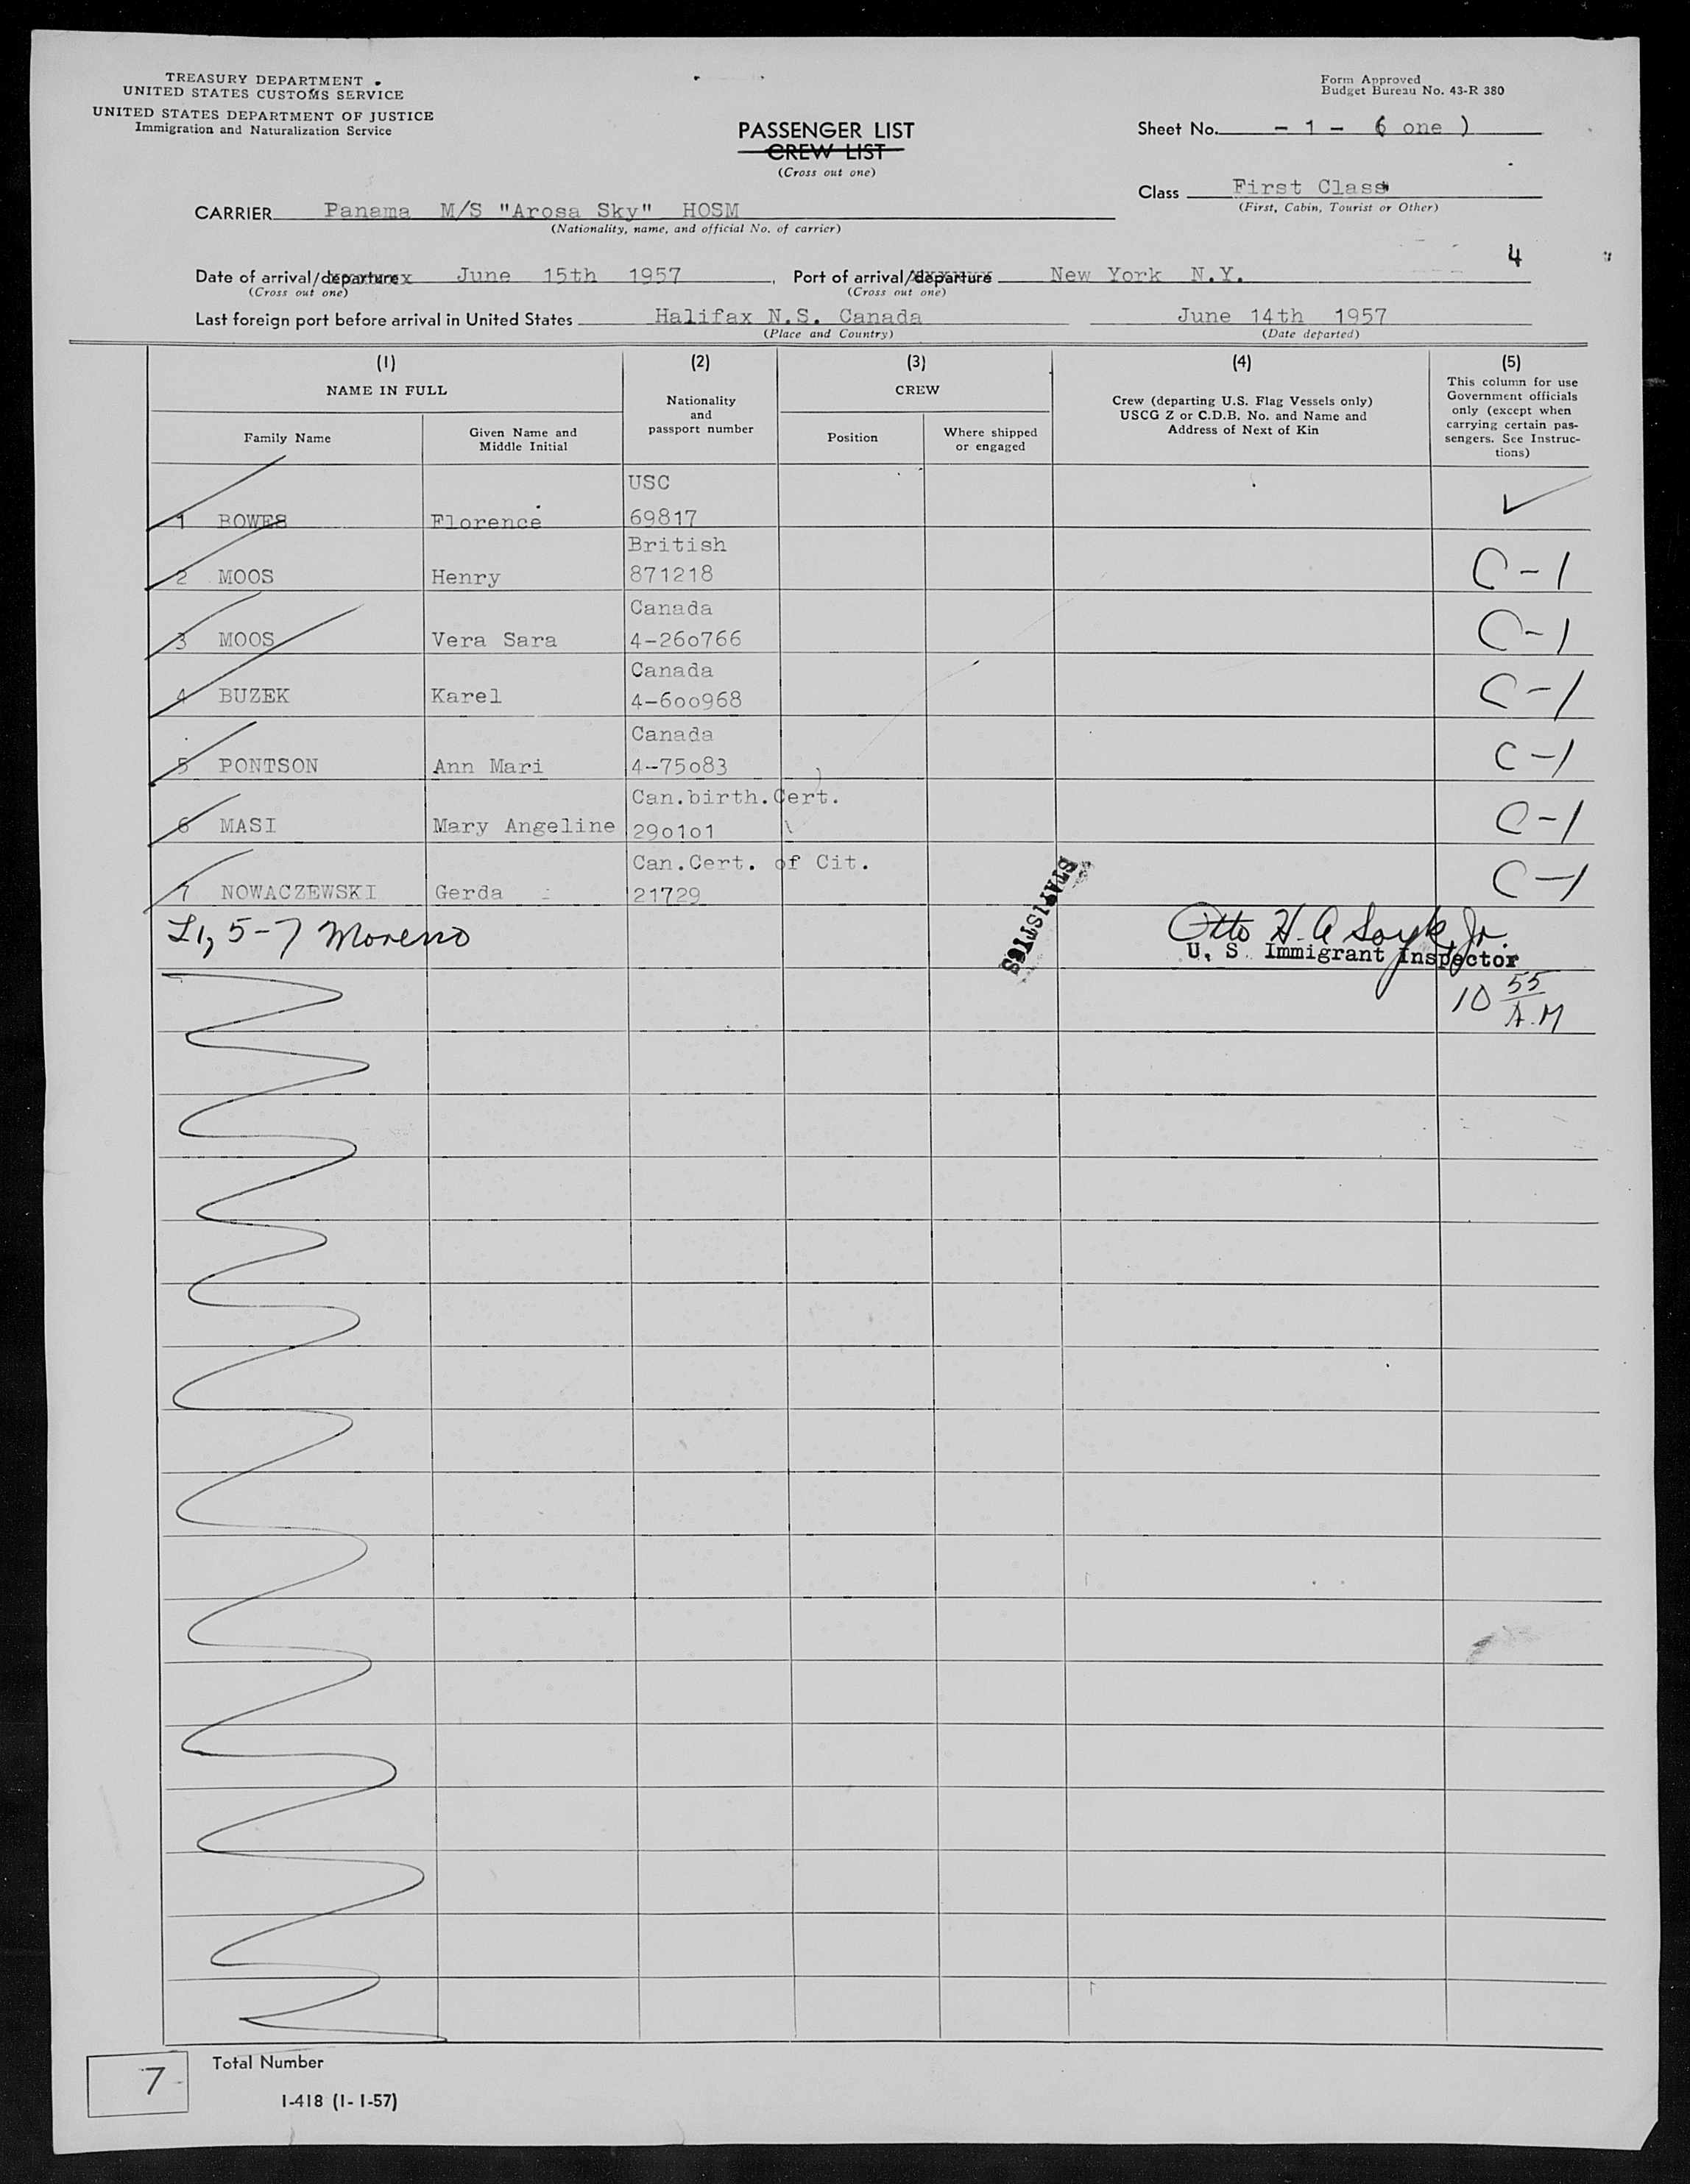 TREASURY DEPARTMENT
UNITED STATES CUSTOMS SERVICE
UNITED STATES DEPARTMENT OF JUSTICE
Immigration and Naturalization Service
Form Approved
Budget Bureau No. 43-R 380
PASSENGER LIST
CREW LIST
(Cross out one)
Sheet No. - 1 - ( one )
Class First Class
(First, Cabin, Tourist or Other)
CARRIER Panama M/S "Arosa Sky" HOSM
(Nationality, name, and official No. of carrier)
4
Date of arrival/departure June 15th 1957, Port of arrival/departure New York N.Y.
(Cross out one) (Cross out one)
Last foreign port before arrival in United States Halifax N.S. Canada June 14th 1957
(Place and Country) (Date departed)
(1) (2) (3) (4) (5)
NAME IN FULL
Family Name
Given Name and
Middle Initial
Nationality
and
passport number
CREW
Position
Where shipped
or engaged
Crew (departing U.S. Flag Vessels only)
USCG Z or C.D.B. No. and Name and
Address of Next of Kin
This column for use
Government officials
only (except when
carrying certain pas-
sengers. See Instruc-
tions)
USC
1 BOWES Florence 69817 ✓
British
2 MOOS Henry 871218 C-1
Canada
3 MOOS Vera Sara 4-260766 C-1
Canada
4 BUZEK Karel 4-600968 C-1
Canada
5 PONTSON Ann Mari 4-75083 C-1
Can.birth.Cert.
6 MASI Mary Angeline 290101 C-1
Can.Cert. of Cit.
7 NOWACZEWSKI Gerda 21729 C-1
L1, 5-7 Moreno
STATISTICS
Otto H. A. Jr.
U. S. Immigrant Inspector
10 55
A.M
7 Total Number
I-418 (1-1-57)